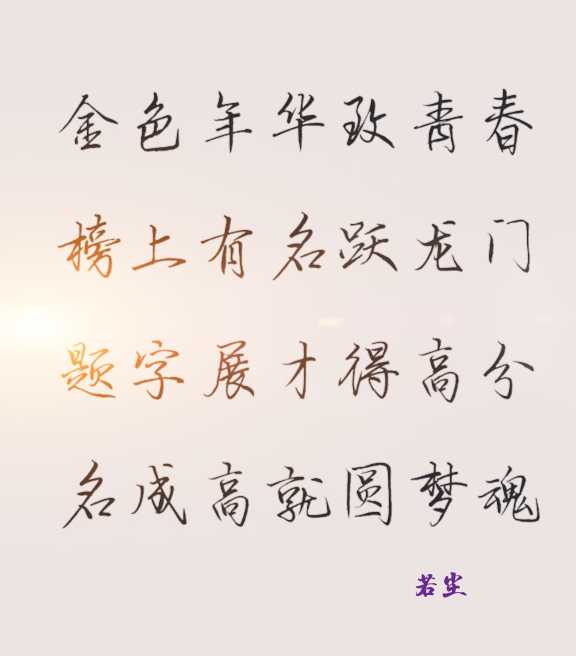 金色年华致青春
榜上有名跃龙门
题字展才得高分
名成高就圆梦魂
若尘